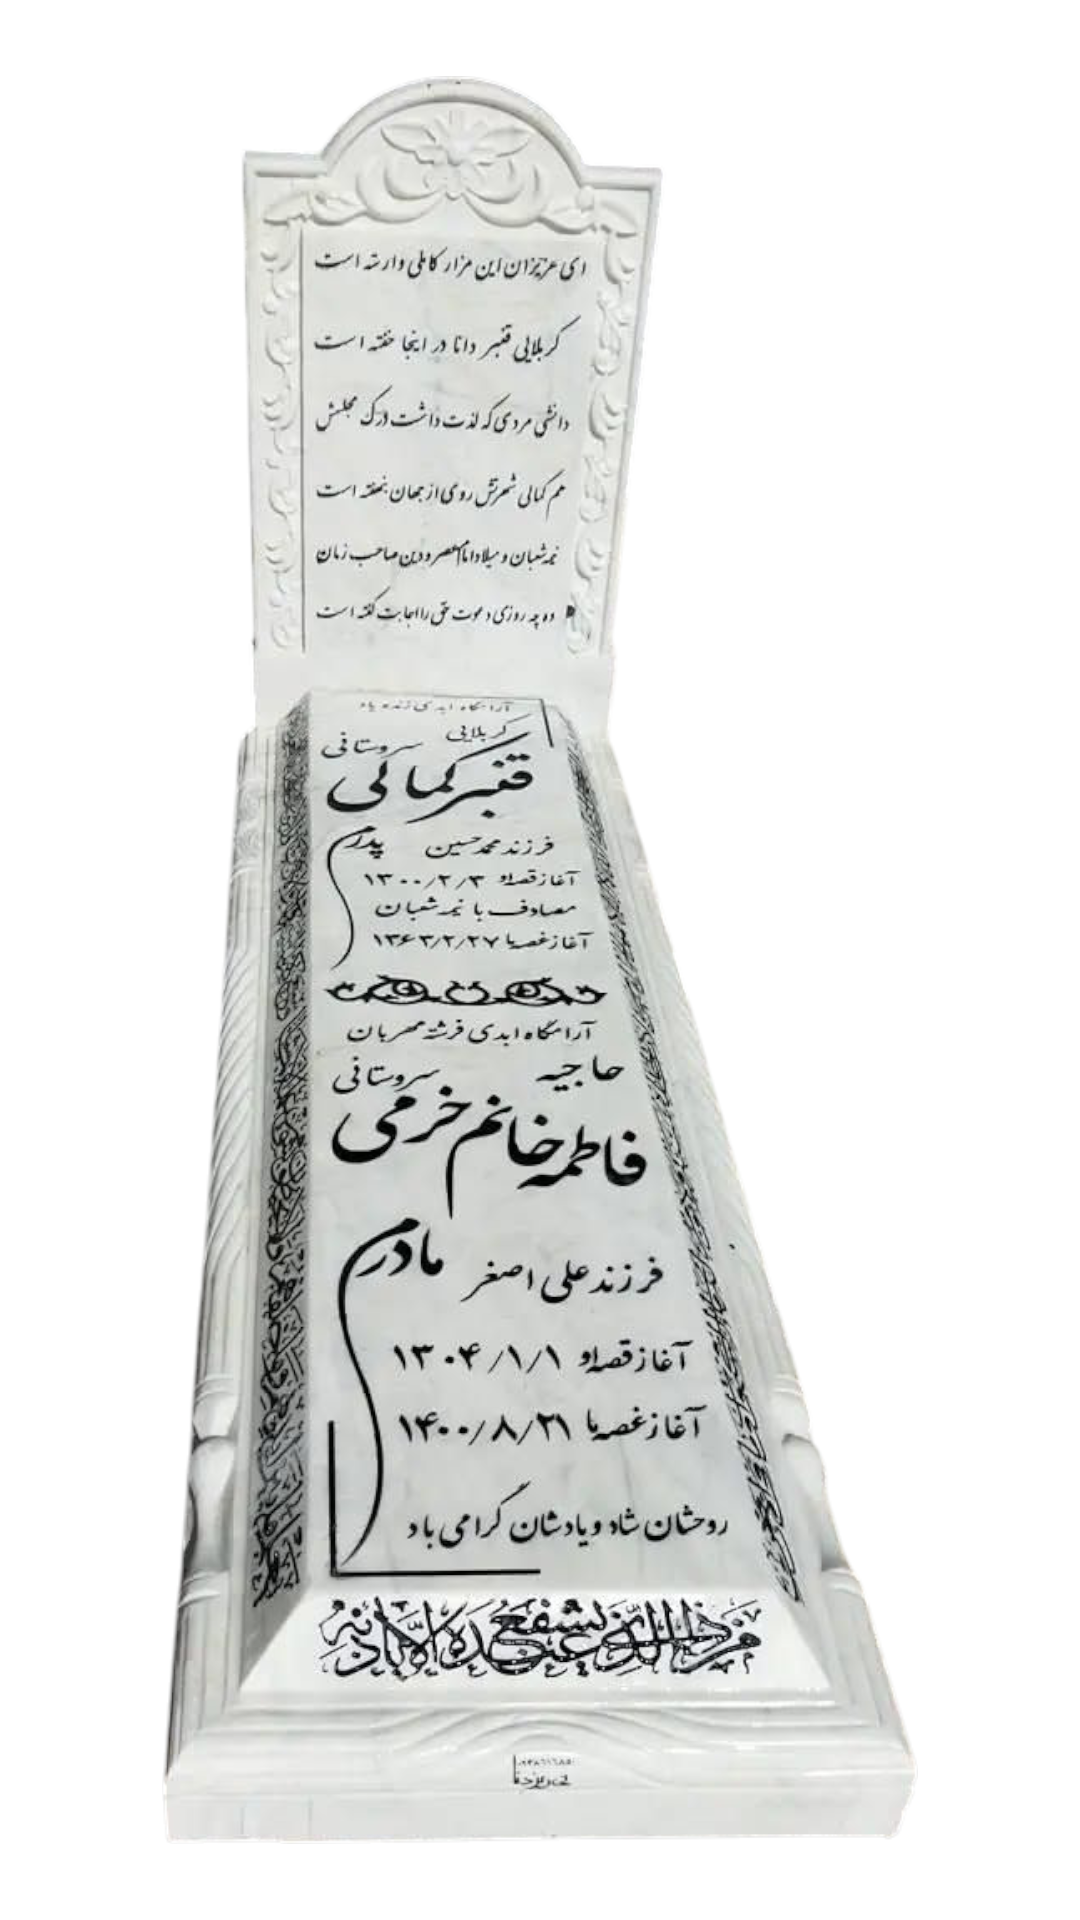 ای عزیزان این مزار کاملی وارسته است
کربلایی قنبر دانا در اینجا خفته است
دانشی مردی که لذت داشت درک مجلسش
هم کمالی شهرتش روی از جهان بنهفته است
نیمه شعبان و میلاد امام عصر و دین صاحب زمان
وه چه روزی دعوت حق را اجابت گفته است
آرامگاه ابدی زنده یاد
کربلایی
قنبر کمالی سروستانی
فرزند محمد حسین پدرم
آغاز قصه او ۱۳۰۰/۲/۳
مصادف با نیمه شعبان
آغاز غصه ما ۱۳۶۳/۲/۲۷
آرامگاه ابدی فرشته مهربان
حاجیه
فاطمه خانم خرمی سروستانی
فرزند علی اصغر مادرم
آغاز قصه او ۱۳۰۴/۱/۱
آغاز غصه ما ۱۴۰۰/۸/۲۱
روحشان شاد و یادشان گرامی باد
من ذا الذی یشفع عنده الا باذنه